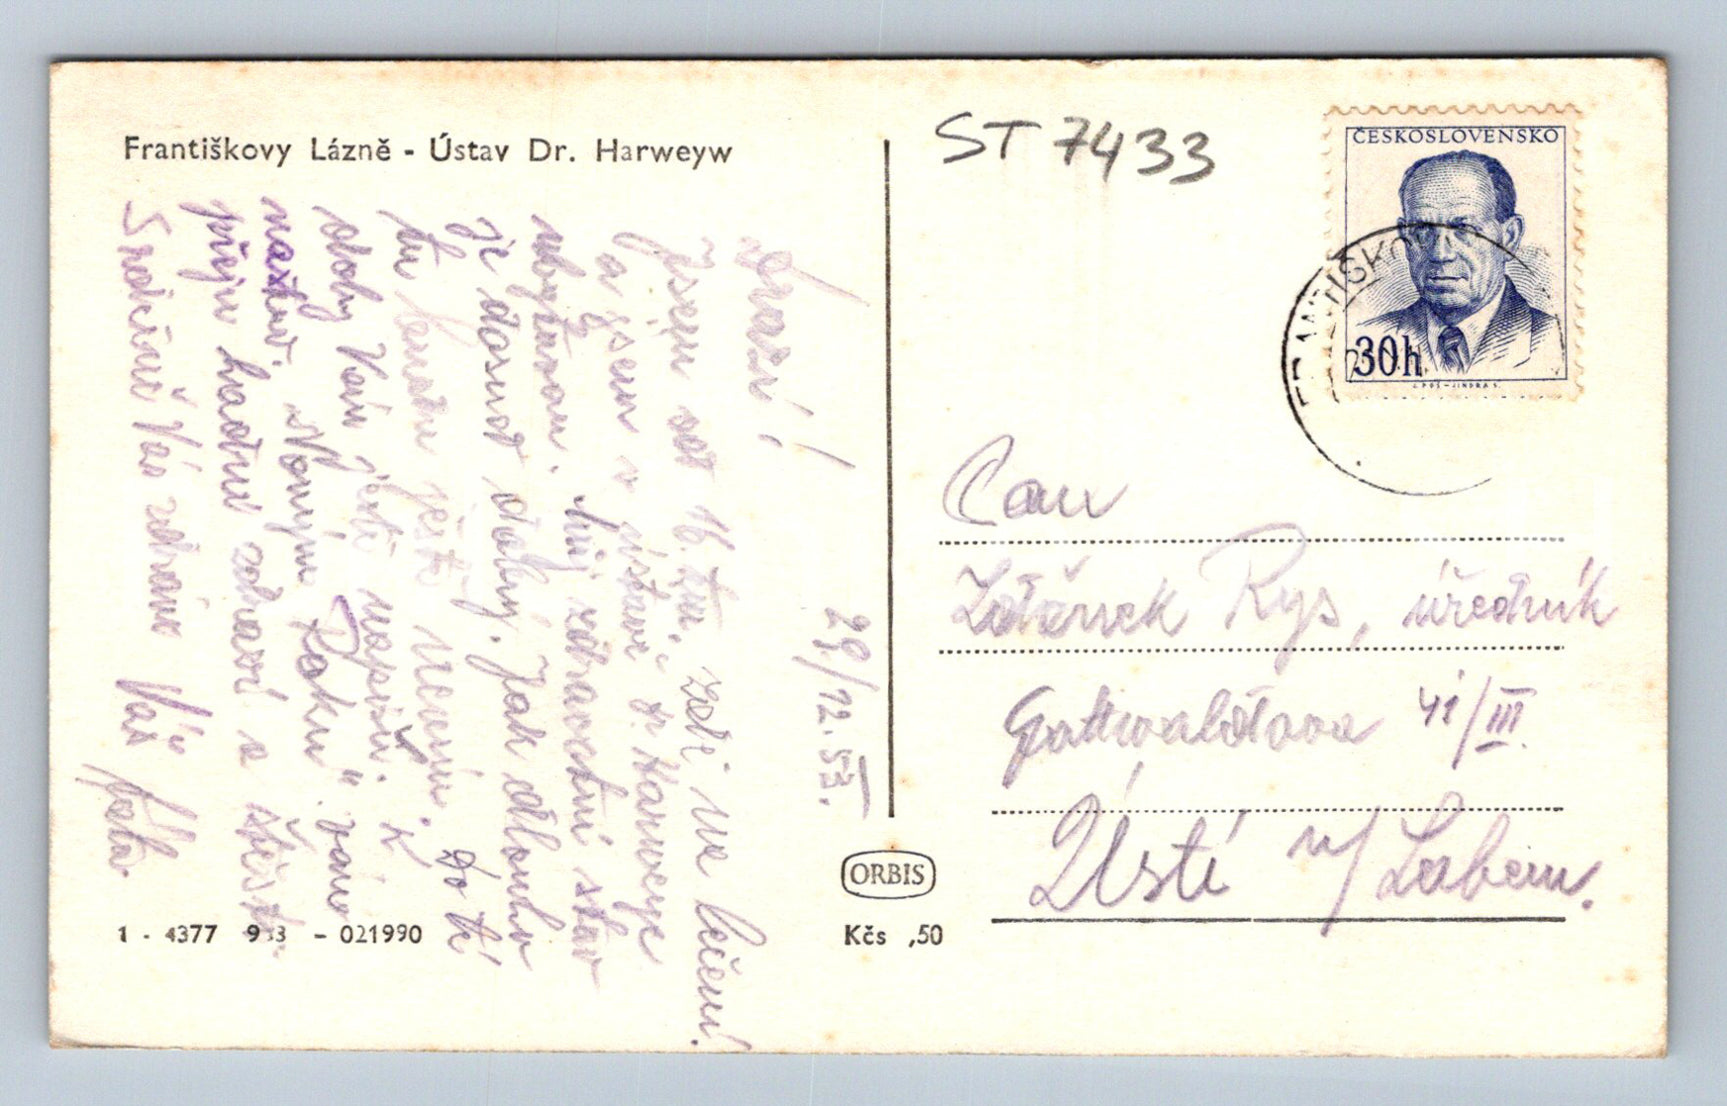 Františkovy Lázně - Ústav Dr. Harweyw
ST 7433
ČESKOSLOVENSKO
30h
Drazí!
Jsem od 16. t.m. zde na léčení
a jsem v ústavě dr Harweye
ubytován. Můj zdravotní stav
je dosud slabý. Jak dlouho
tu budu ještě nevím. Do té
doby Vám ještě napíši. K
nast. Novým Roku" vám
přeju hodně zdraví a štěstí.
Srdečně Vás zdraví Váš
29/12.53.
Pan
Zdeněk Rys, úředník
Gottwaldova 41/III.
Ústí n/Labem.
ORBIS
Kčs ,50
1 - 4377 - 021990